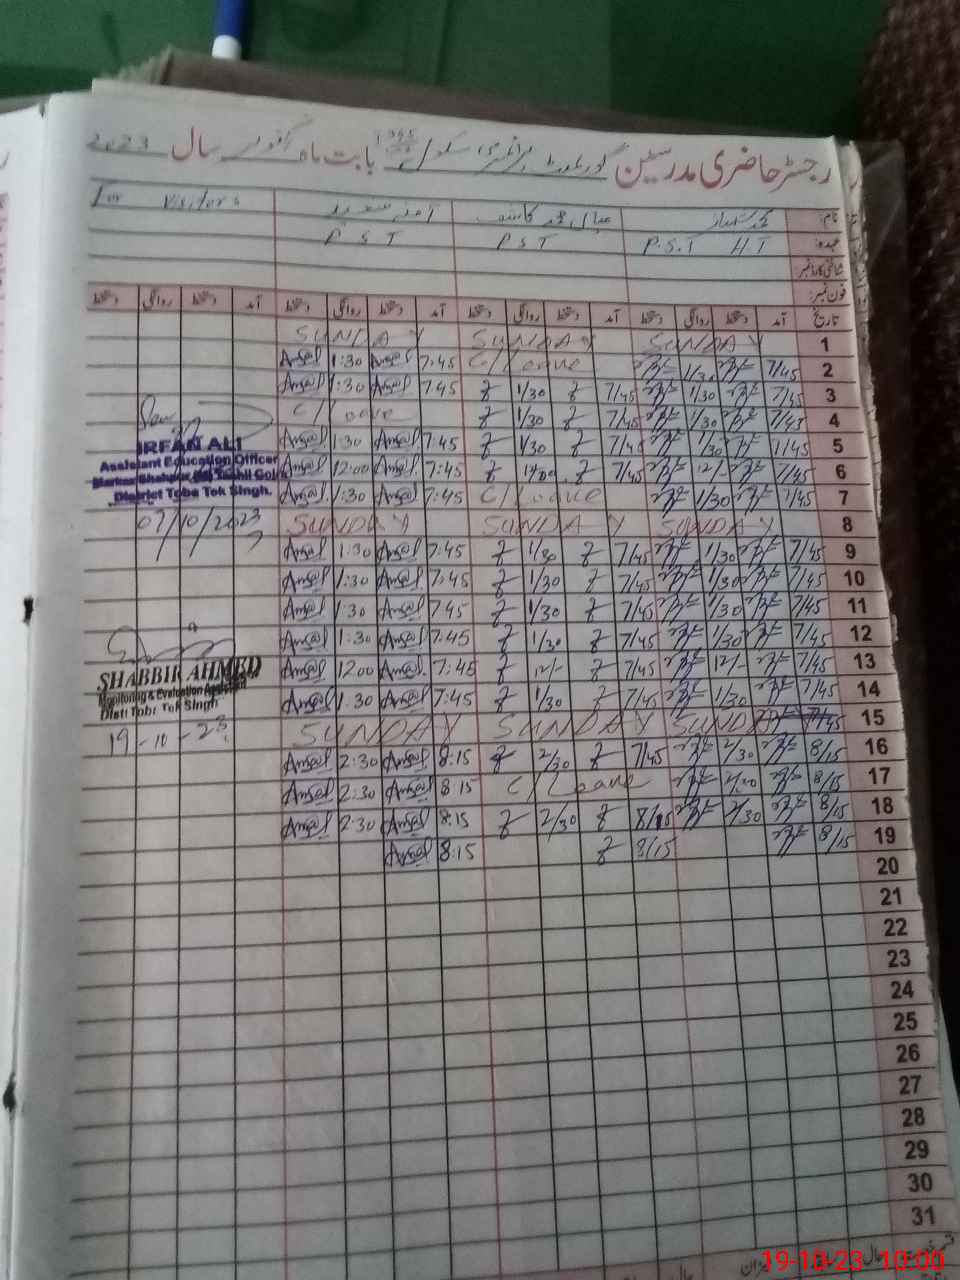 رجسٹر حاضری مدرسین گورنمنٹ پرائمری سکول 345 بابت ماہ اکتوبر سال 2023
نام: محمد شہباز محمد کاشف آمنہ سعید For visitors
عہدہ: P.S.T H.T P S T P S T
شناختی کارڈ نمبر
فون نمبر:
تاریخ آمد دستخط روانگی دستخط آمد دستخط روانگی دستخط آمد دستخط روانگی دستخط آمد دستخط روانگی دستخط
SUNDAY SUNDAY SUNDAY 1
1:30 7:45 C/Leave 1/30 7/45 2
1:30 7:45 1/30 7/45 1/30 7/45 3
C/Leave 1/30 7/45 1/30 7/45 4
1:30 7:45 1/30 7/45 1/30 7/45 5
12:00 7:45 12/00 7/45 12/- 7/45 6
1:30 7:45 C/Leave 1/30 7/45 7
IRFAN ALI
Assistant Education Officer
District Toba Tek Singh.
07/10/2023
SUNDAY SUNDAY SUNDAY 8
1:30 7:45 1/30 7/45 1/30 7/45 9
1:30 7:45 1/30 7/45 1/30 7/45 10
1:30 7:45 1/30 7/45 1/30 7/45 11
1:30 7:45 1/30 7/45 1/30 7/45 12
12:00 7:45 12/- 7/45 12/- 7/45 13
1:30 7:45 1/30 7/45 1/30 7/45 14
SHABBIR AHMED
Monitoring & Evaluation Assistant
Distt Toba Tek Singh
19-10-23
SUNDAY SUNDAY SUNDAY 7/45 15
2:30 8:15 2/30 7/45 2/30 8/15 16
2:30 8:15 C/Leave 2/30 8/15 17
2:30 8:15 2/30 8/15 2/30 8/15 18
8:15 8/15 8/15 19
20
21
22
23
24
25
26
27
28
29
30
31
19-10-23 10:00